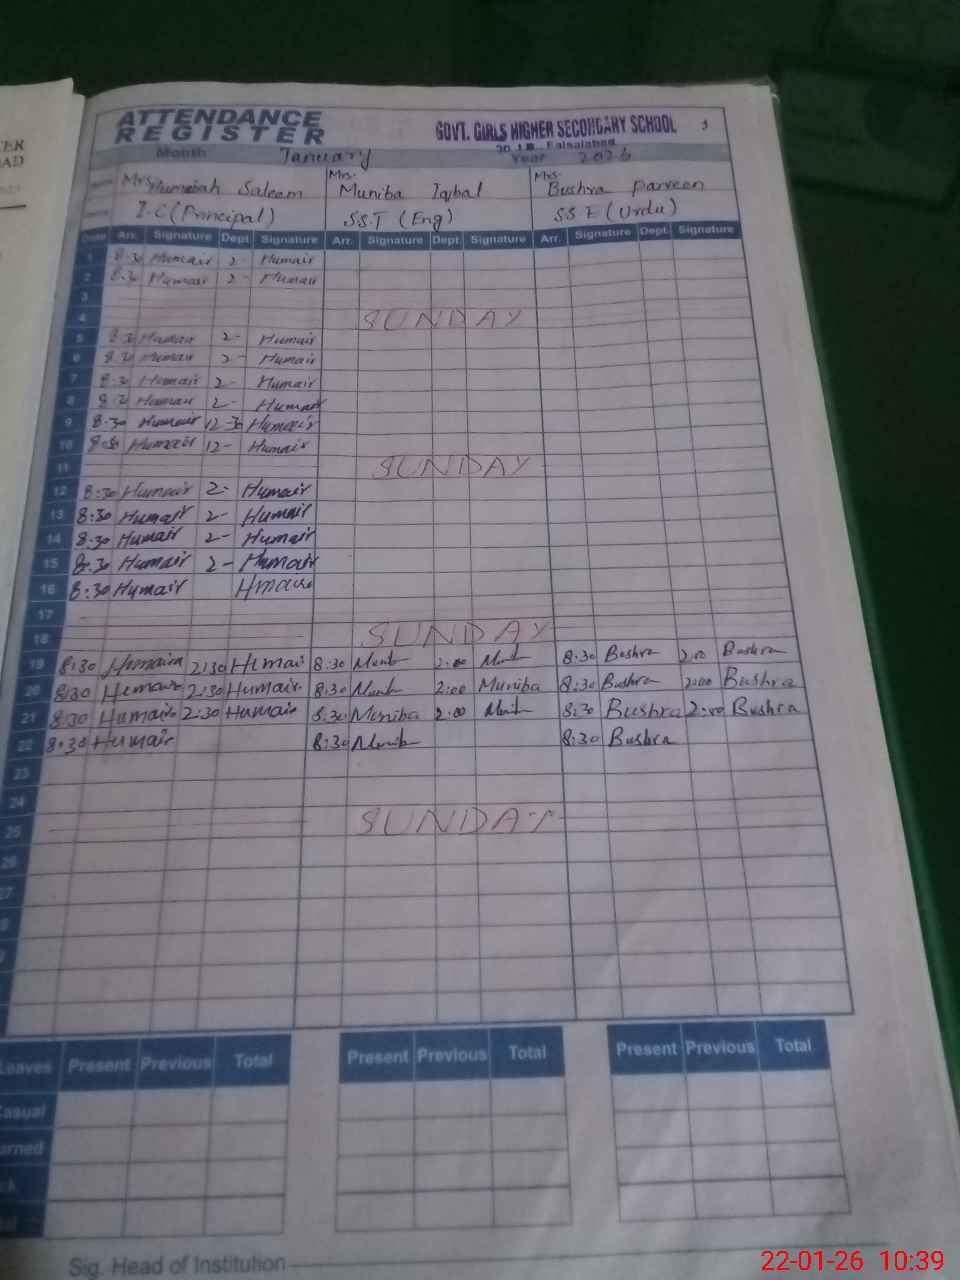 ER
AD
ATTENDANCE
REGISTER
GOVT. GIRLS HIGHER SECONDARY SCHOOL 3
Faisalabad
Month January Year 2026
Mrs. Humairah Saleem Mrs. Muniba Iqbal Mrs. Bushra Parveen
I.C (Principal) S.S.T (Eng) S.S.E (Urdu)
Date Arr. Signature Dept. Signature Arr. Signature Dept. Signature Arr. Signature Dept. Signature
1 8:30 Humair 2- Humair
2 8:30 Humair 2- Humair
3
4 SUNDAY
5 8:30 Humair 2- Humair
6 8:30 Humair 2- Humair
7 8:30 Humair 2- Humair
8 8:30 Humair 2- Humair
9 8:30 Humair 12-30 Humair
10 8:30 Humair 12- Humair
11 SUNDAY
12 8:30 Humair 2- Humair
13 8:30 Humair 2- Humair
14 8:30 Humair 2- Humair
15 8:30 Humair 2- Humair
16 8:30 Humair
17
18 SUNDAY
19 8:30 Humaira 2:30 Humair 8:30 2:00 8:30 Bushra 2:00 Bushra
20 8:30 Humair 2:30 Humair 8:30 2:00 Muniba 8:30 Bushra 2:00 Bushra
21 8:30 Humair 2:30 Humair 8:30 Muniba 2:00 8:30 Bushra 2:00 Bushra
22 8:30 Humair 8:30 8:30 Bushra
23
24
25 SUNDAY
26
27
8
Leaves Present Previous Total Present Previous Total Present Previous Total
Casual
arned
Sig. Head of Institution
22-01-26 10:39